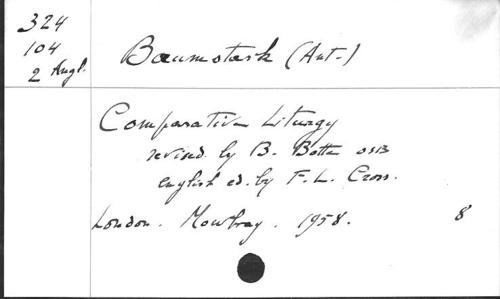 324
104
2 Angl.
Baumstark (Ant.)
Comparative Liturgy
revised by B. Botte OSB
english ed. by F. L. Cross.
London. Mowbray. 1958. 8